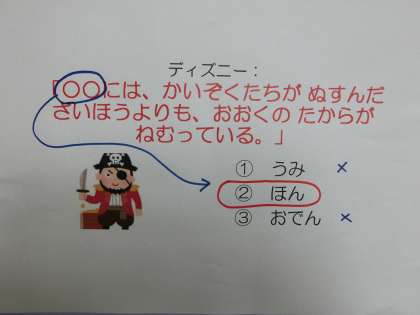 ディズニー：
「〇〇には、かいぞくたちが ぬすんだ
ざいほうよりも、おおくの たからが
ねむっている。」
① うみ ×
② ほん
③ おでん ×